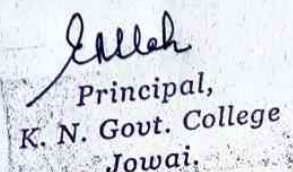 Principal,
K. N. Govt. College
Jowai.